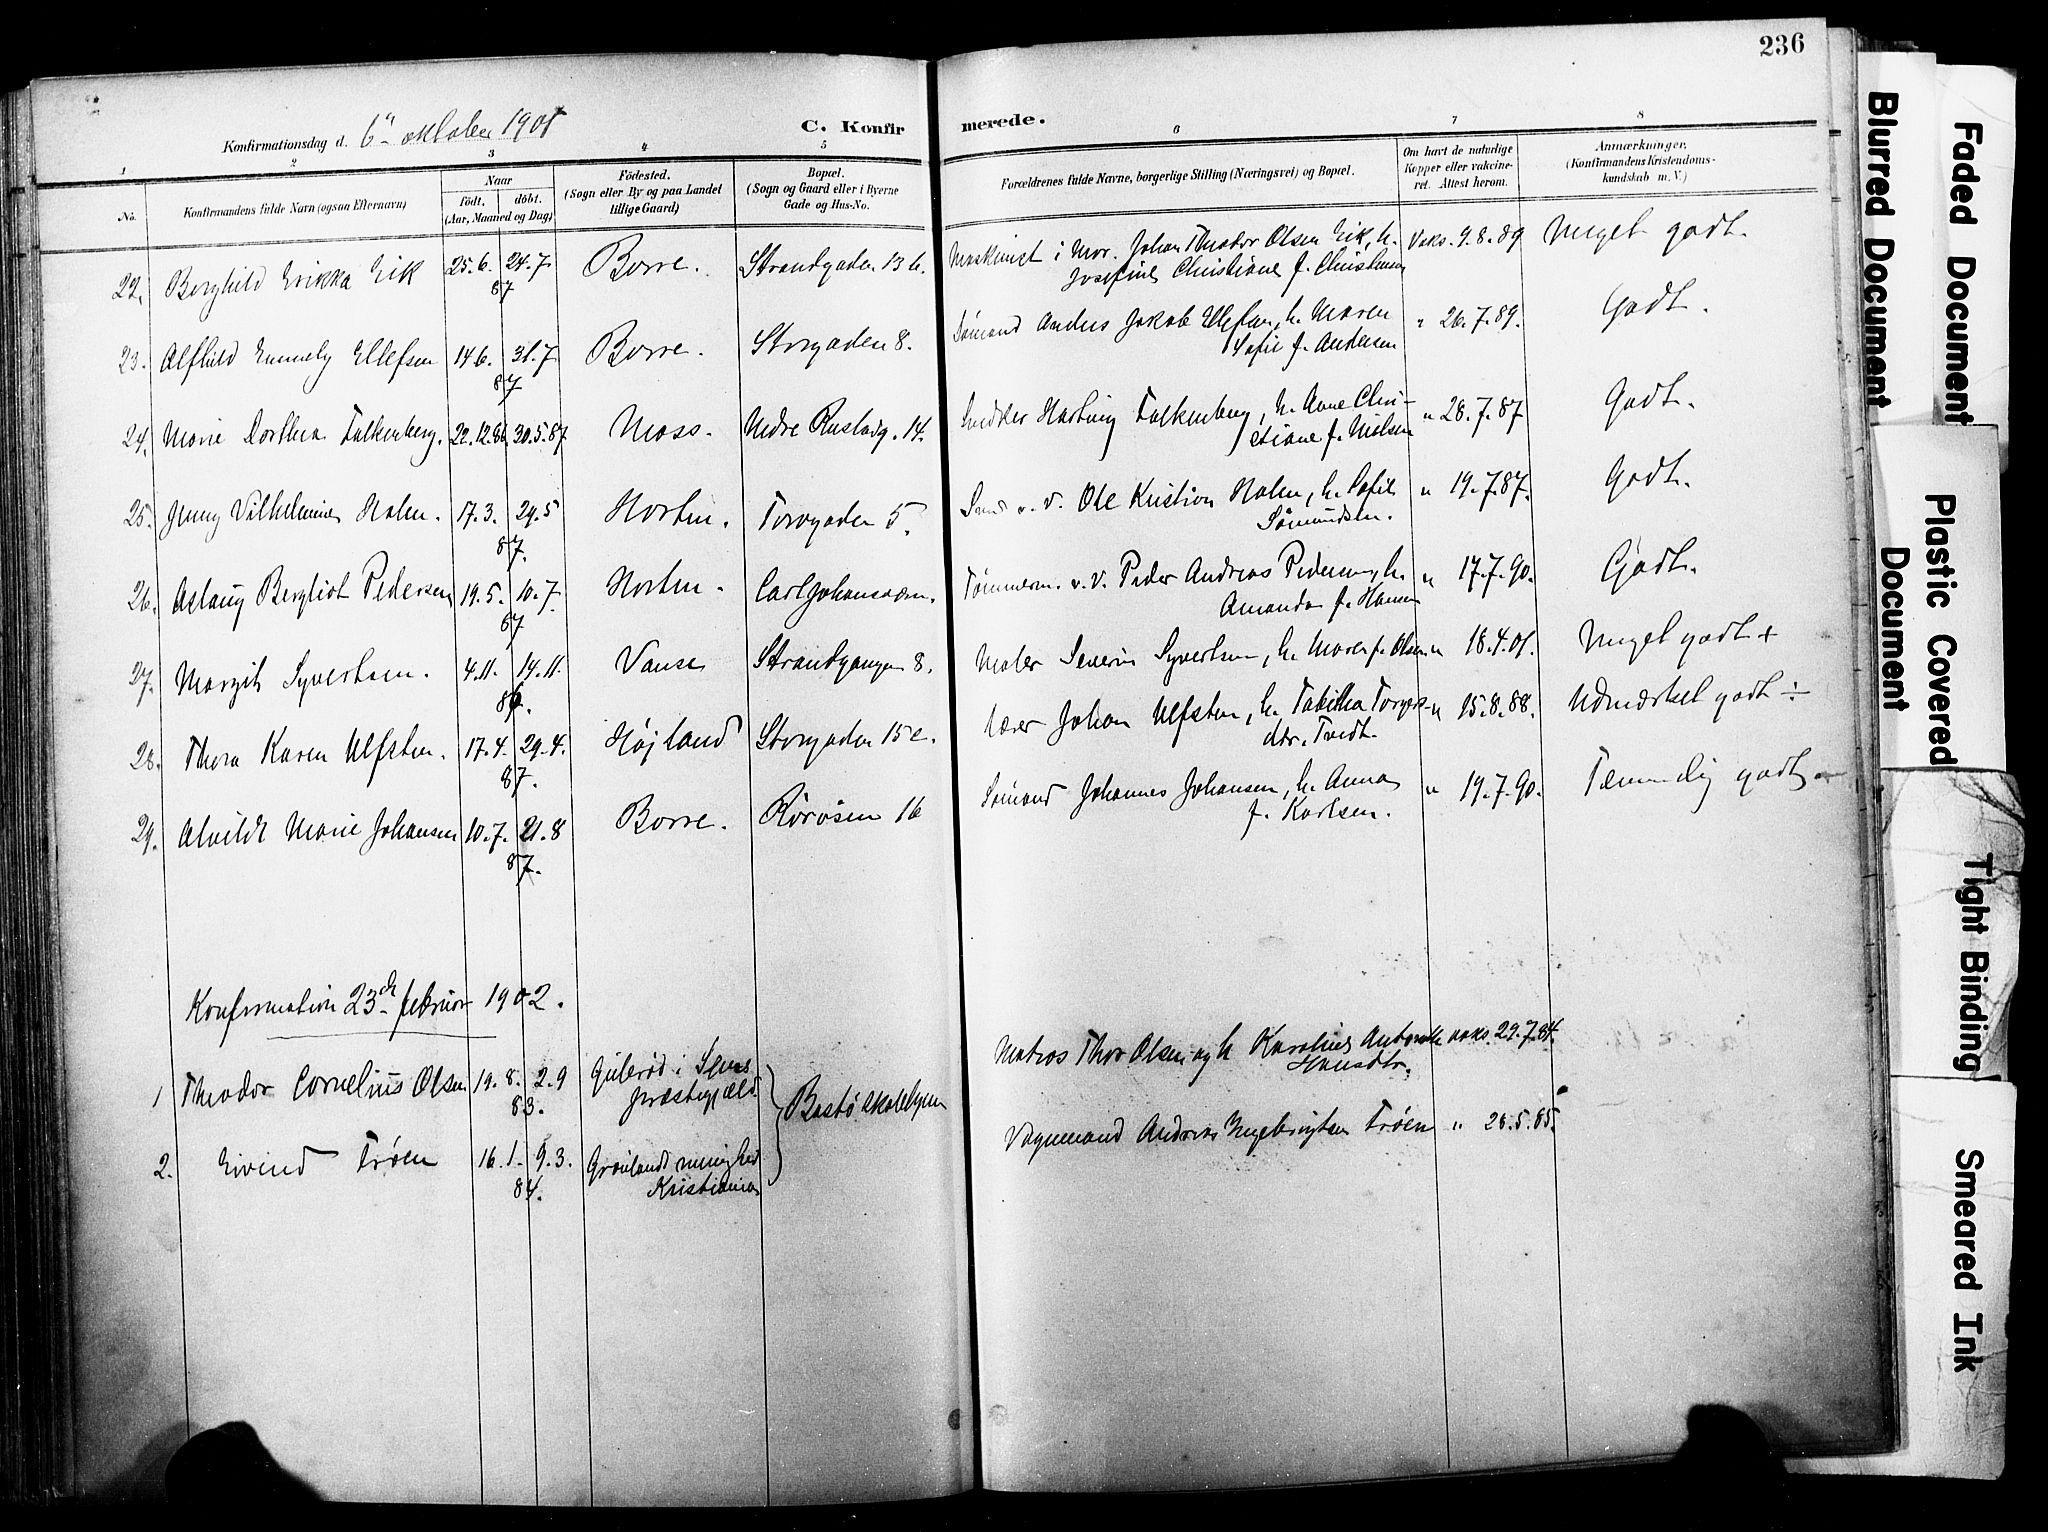 236
Konfirmationsdag d. 6te oktober 1901
C. Konfirmerede.
1 2 3 4 5 6 7 8
No.
Konfirmandens fulde Navn (ogsaa Efternavn)
Naar
födt. döbt.
(Aar, Maaned og Dag)
Födested.
(Sogn eller By og paa Landet
tillige Gaard)
Bopæl.
(Sogn og Gaard eller i Byerne
Gade og Hus-No.
Forældrenes fulde Navne, borgerlige Stilling (Næringsvei) og Bopæl.
Om havt de naturlige
Kopper eller vakcine-
ret. Attest herom.
Anmærkninger.
(Konfirmandens Kristendoms-
kundskab m. V.)
22. Borghild Erikka Eik 25.6. 24.7. 87 Borre. Strandgaden 13 b. Maskinist i Mar. Johan Theodor Olsen Eik, h. Vaks. 9.8.89 Meget godt.
Josefine Christiane f. Christensen
23. Alfhild Emmely Ellefsen 14.6. 31.7 87 Borre. Storgaden 8. Sømand Anders Jakob Ellefsen, h. Maren " 26.7.89. Godt.
Sofie f. Andersen
24. Marie Dorthea Falkenberg. 22.12.86 30.5.87 Moss. Nedre 14. Snedker Hartvig Falkenberg, h. Anne Chri- " 28.7.87 Godt.
stiane f. Nielsen
25. Jenny Vilhelmine Holen. 17.3. 29.5 87. Horten. Torvgaden 5. v. V. Ole Kristian Holen, h. Sofie " 19.7.87. Godt.
Sømundsen.
26. Aslaug Bergliot Pedersen 19.5. 10.7. 87 Horten. Carljohansværn. Tømmerm. v. V. Peder Andreas Pedersen, h. " 17.7.90. Godt.
Amanda f. Hansen
27. Margit Syvertsen. 4.11. 14.11. 86. Vanse Strandgangen 8. Maler Severin Syvertsen, h. Maren f. Olsen " 18.4.01. Meget godt +
28. Thora Karen Ulfsten. 17.4. 29.4. 87. Højland Storgaden 15 c. Lærer Johan Ulfsten, h. Tabitha Torgers- " 15.8.88. Udmærket godt ÷
dtr. Tvedt.
29. Alvilde Marie Johansen 10.7. 21.8 87. Borre. Rørosen 16 Sømand Johannes Johansen, h. Anna " 19.7.90. Temmelig godt
f. Karlsen.
Konfirmation 23de februar 1902.
1 Theodor Cornelius Olsen 19.8. 2.9 83. i Sems
præstegjæld Bastø skolehjem Matros Thor Olsen og h Karoline Antonette vaks. 29.7.84.
Hansdtr.
2. Eivind Trøen 16.1. 9.3. 84. Grønlands menighed
Kristiania Vognmand Andreas Engebrigtsen Trøen " 28.5.85.
Faded Document
Blurred Document
Plastic Covered
Document
Tight Binding
Smeared Ink